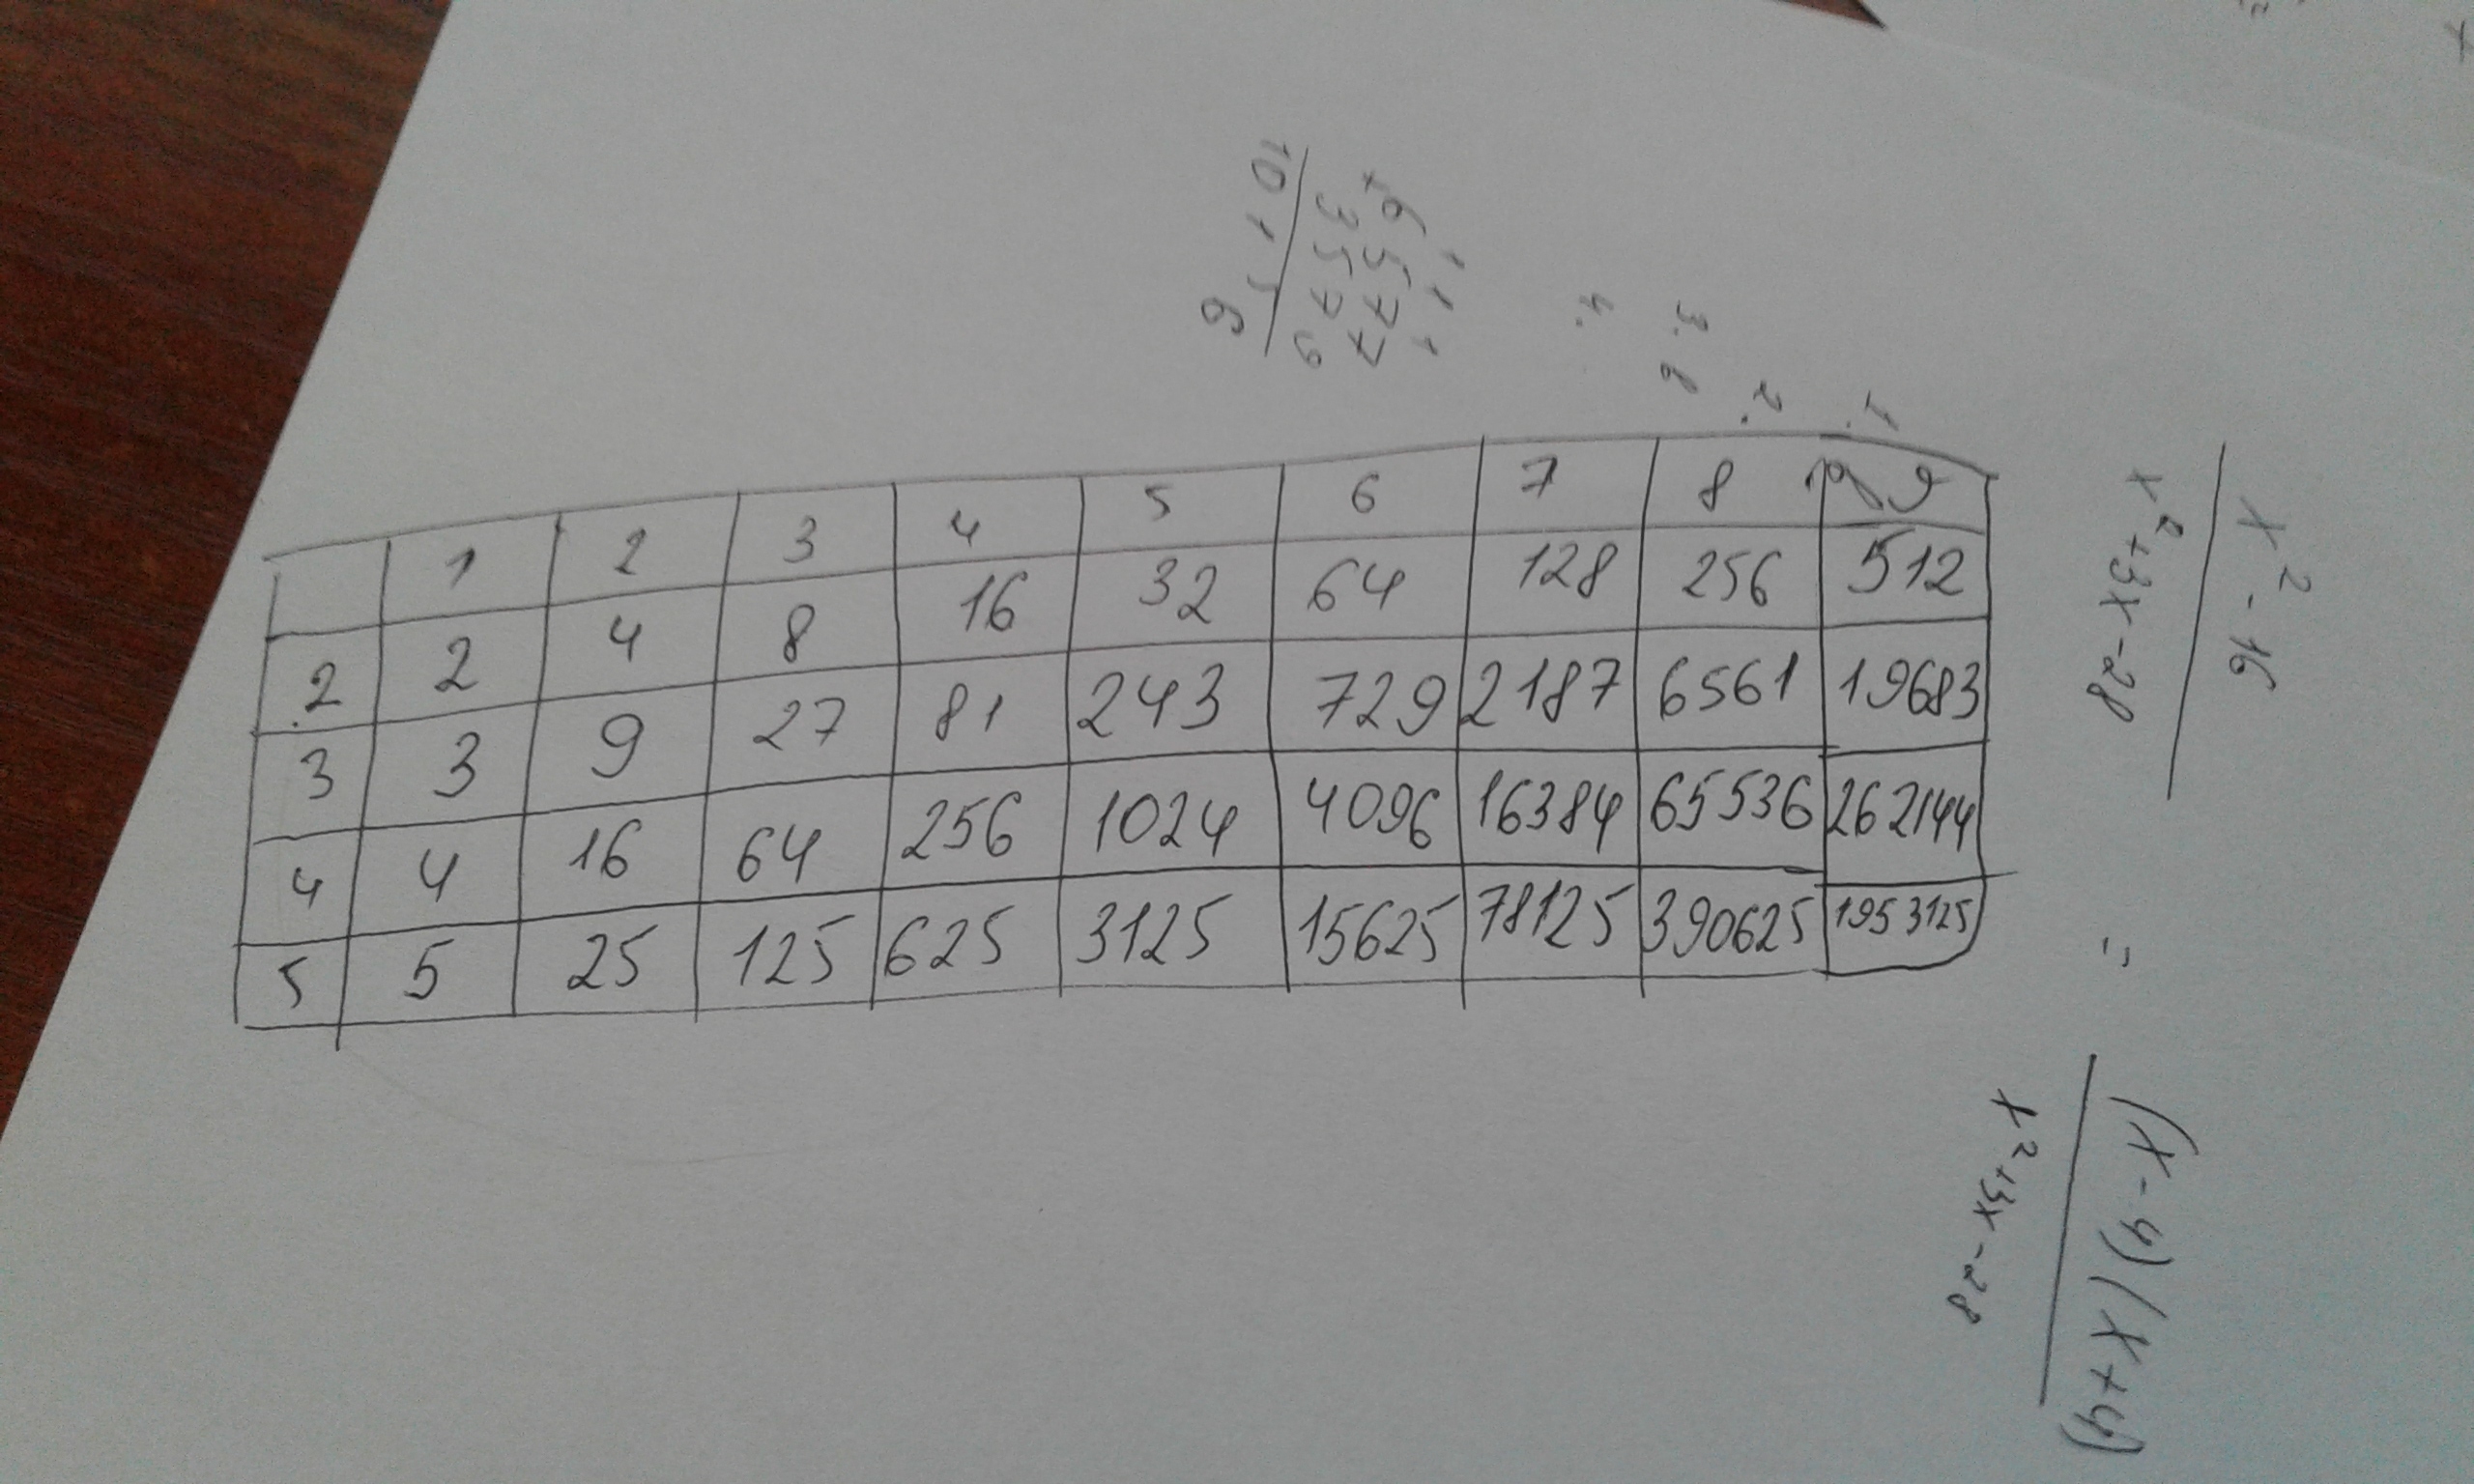 1 2 3 4 5 6 7 8 9
2 2 4 8 16 32 64 128 256 512
3 3 9 27 81 243 729 2187 6561 19683
4 4 16 64 256 1024 4096 16384 65536 262144
5 5 25 125 625 3125 15625 78125 390625 1953125
x² - 16
x² + 3x - 28
=
(x - 4)(x + 4)
x² + 3x - 28
1.
2.
3. 8
4.
1 1 1
+ 6577
3579
101 6